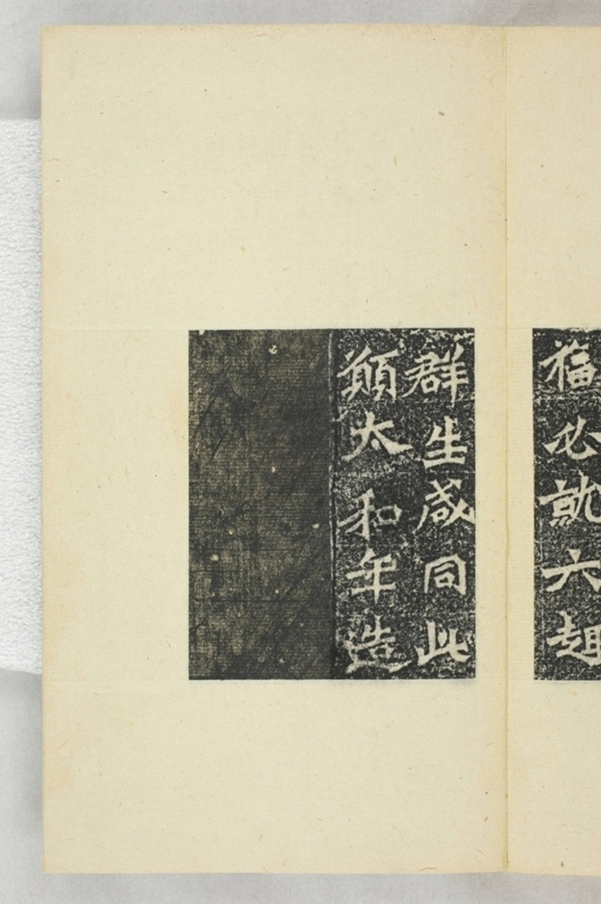 福必就六趣
群生咸同此
願太和年造